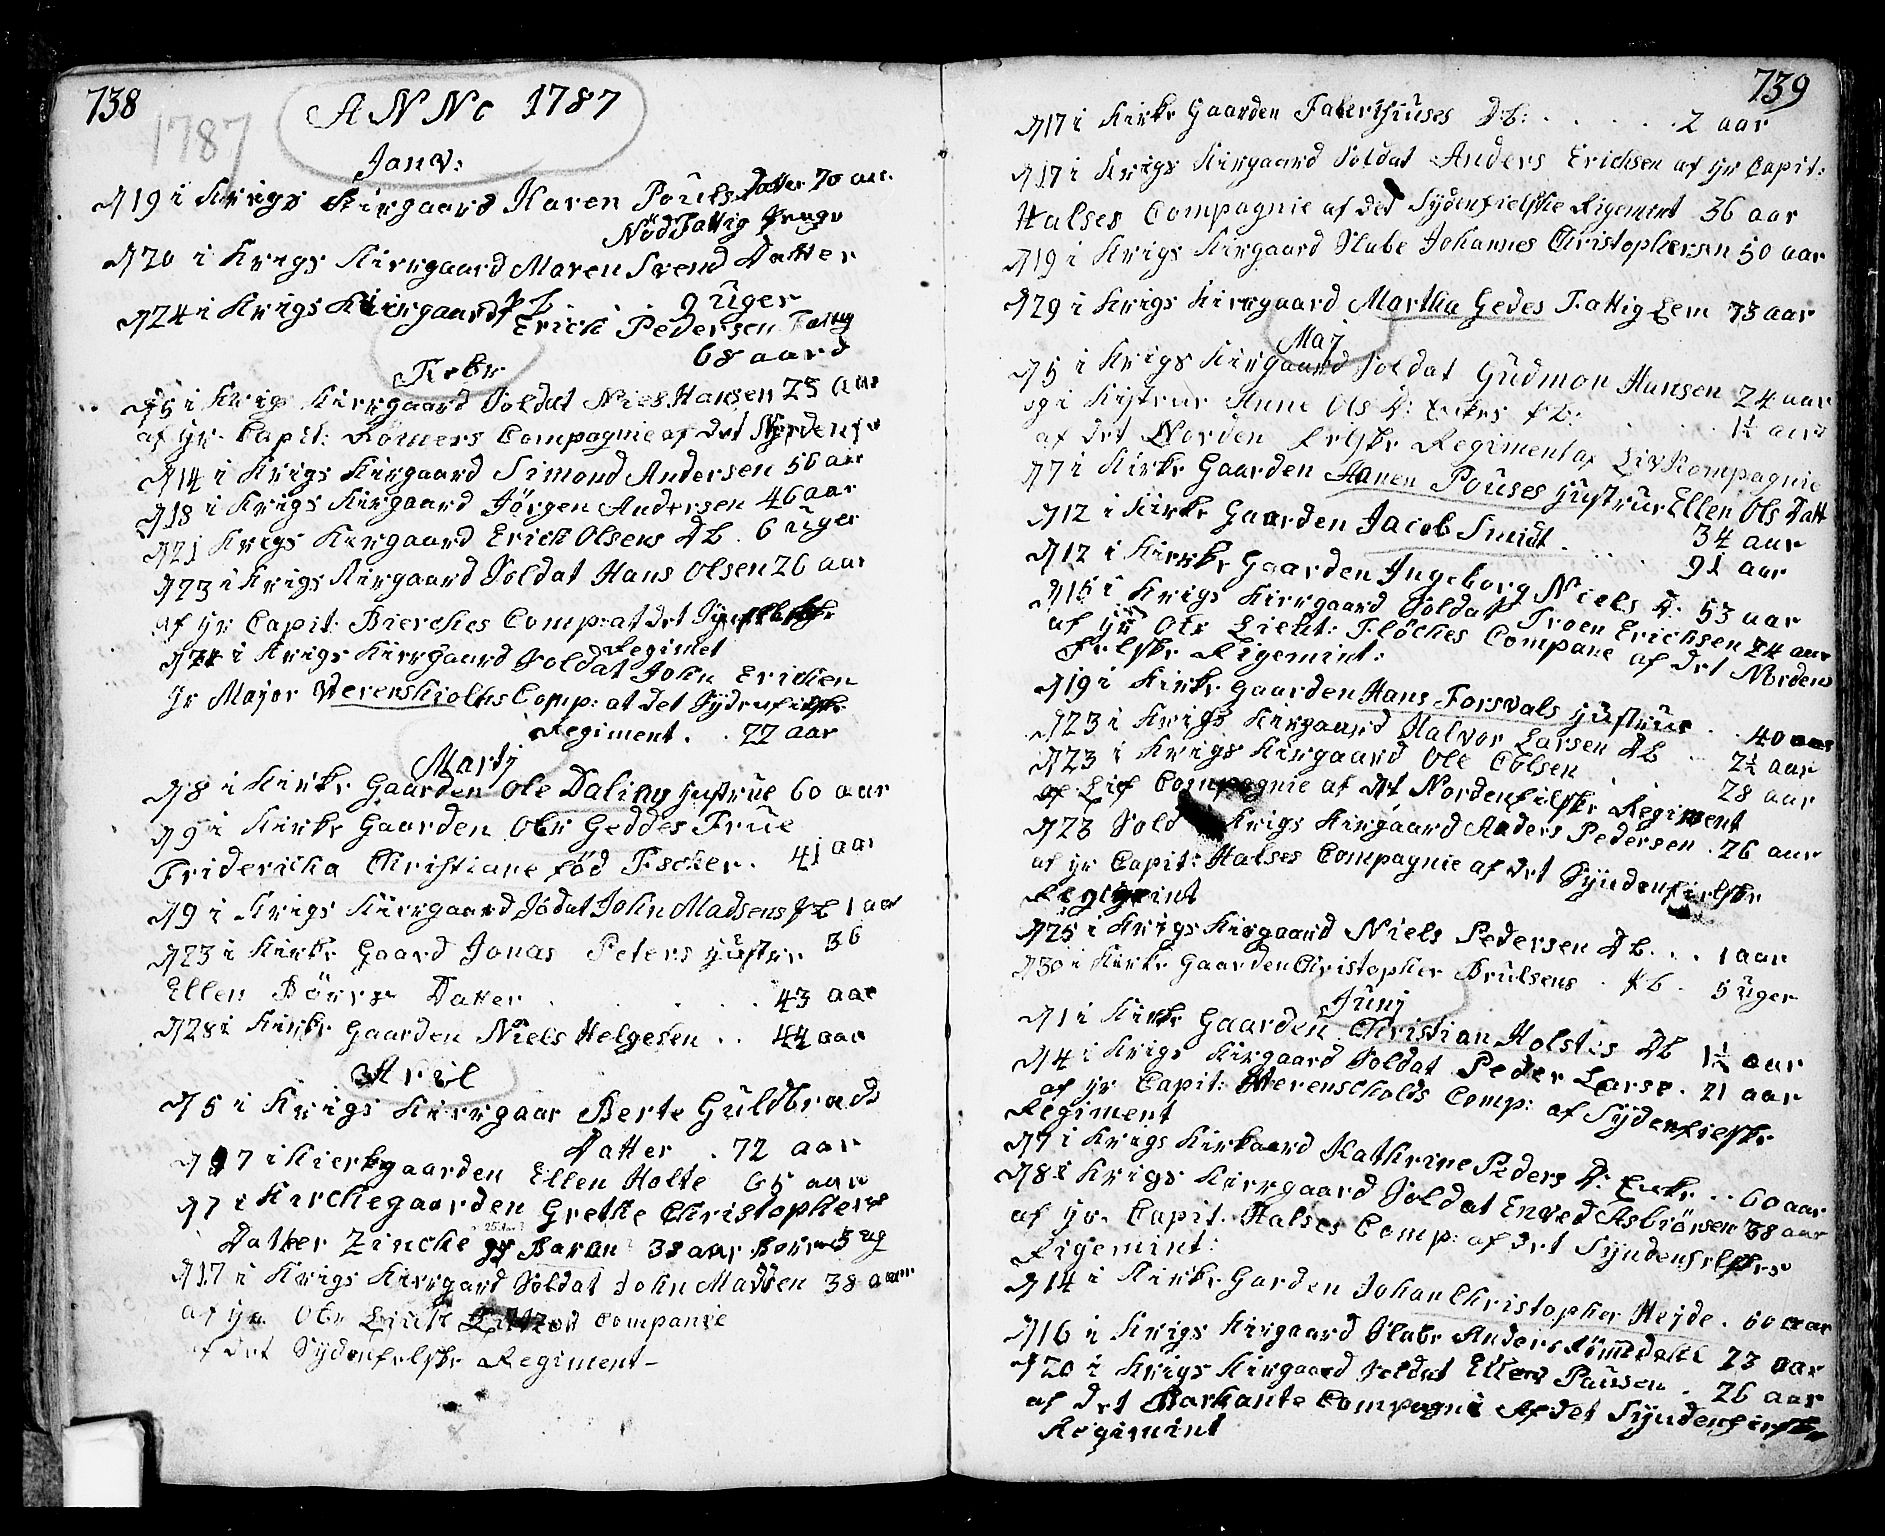 738
ANNo 1787
1787
Janv:
D 19 i Krigs Kirgaard Karen Pouls Datter 70 aar
Nød Fattig
D 20 i Krigs Kirrgaard Maren Svend Datter
9 uger
D 24 i Krigs Kiirgaard Erich Pedersen
68 aard
Febr
D 5 i Krigs Kirrgaard Soldat Niels Hansen 25 aar
af Hr. Capit: Rømers Compagnie af det
D 14 i Krigs Kirgaard Simond Andersen 56 aar
D 18 i Krigs Kirgaard Jørgen Andersen 46 aar
D 21 Krigs Kirgaard Erich Olsens DB. 6 uger
D 23 i Krigs Kirgaard Soldat Hans Olsen 26 aar
af Hr Capit: Bierckes Comp: at det
Regimet
D 24 i Krigs Kirrgaard Soldat John Ericken
Hr Major Verenskiolts Comp: at det Sydenfielske
Regiment. . 22 aar
Martj
D 8 i Kirke Gaarden Ole Daling Hustrue 60 aar
D 9 i Kirke Gaarden Obr Geddes Frue
Fridericha Christiane fød Fischer. 41 aar
D 9 i Krigs Kiirgaard Sodat John Madsens PB 1 aar
D 23 i Kirke Gaard Jonas Peters Hustru 36
Ellen Børre Datter . . . . . 43 aar
D 28 i Kirke Gaarden Niels Helgesen . . 44 aar
April
D 5 i Krigs Kirrgaar Berte Guldbrads
Datter . 72 aar
D 7 i Kierkgaarden Ellen Holte 65 aar
D 7 i Kirchegaarden Grethe Christophers
Datter Zincke Baran 38 aar
D 17 i Krigs Kirrgard Soldat John Madsen 38 aar
af Hr Obr Liut: Companie
af det Sydenfelske Regiment -
739
D 17 i Kirke Gaarden Faberhiuses DB: . . . . . 2 aar
D 17 i Krigs Kirgaard Soldat Anders Erichsen af Hr Capit:
Halses Compagnie af det Sydenfielske Rigement 36 aar
D 19 i Krigs Kirgaard Slabe Johannes Christophersen 50 aar
D 29 i Krigs Kirrgaard Martha Gedes Fattig Lem 73 aar
Maj
D 5 i Krigs Kirgaard Soldat Gudmon Hansen 24 aar
Anne Ols D: PB: . . . 1½ aar
af det Norden felske Regiment af Liv Kompagnie
D 7 i Kirke Gaarden Hanen Pouses Hustrue Ellen Ols Datt
34 aar
D 12 i Kirke Gaarden Jacob Smidt . . . . 91 aar
D 12 i Kirke Gaarden Ingeborg Niels D: 53 aar
D 15 i Krigs Kirrgaard Soldat Troen Erichsen 24 aar
af Hr Obr Lieut: Fløckes Compane af det Norden
Felske Rigemint:
D 19 i Kirke gaarden Hans Forsvals Hustrue . . 40 aar
D 23 i Krigs Kirgaard Halvor Larsen DB . . 2½ aar
D 23 i Krigs Kirgaard Ole Eblsen . . 28 aar
af Lif Compagnie af det Nordenfilske Regiment
D 23 Sold Krigs Kirgaard Anders Pedersen . 26 aar
af Hr Capit: Halses Compagnie af det Syndenfielske
Regigmint
D 25 i Krigs Kirgaard Niels Pedersen DB. . . 1 aar
D 30 i Kirke Gaarden Christopher Brulsens . PB . 5 uger
Junj
D 1 i Kirke Gaarden Christian Holstes DB 1½ aar
D 4 i Krigs Kirgaard Soldat Peder Larse . 21 aar
af Hr Capit: Werenscholds Comp: af Sydenfielske
Regiment
D 7 i Krigs Kirkaard Kathrine Peders D: Enke . . 60 aar
D 8 i Krigs Kirrgaard Soldat Enved Asbiørnsen 38 aar
af Hr. Capit. Halses Comp: af det Syndenfelske
Rigemint:
D 14 i Kirke Garden Johan Christopher Heyde . 60 aar
D 16 i Krigs Kirgaard Slabe Anders Romdahl 23 aar
D 20 i Krigs Kirgaard Soldat Ellend Pausen . 26 aar
af det Barkante Compagni Af det Syndenfielske
Regimint